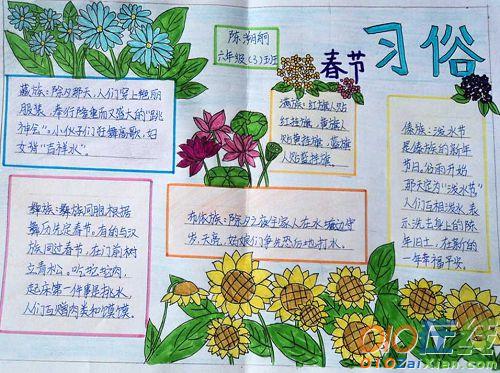 陈湖蒴
六年级(3)班
春节
习俗
藏族:除夕那天,人们穿上艳丽
服装,奉行隆重而又盛大的“跳
神会”。小伙子们狂舞高歌,妇
女背“吉祥水”。
满族:红旗人贴
红挂旗,黄旗人
贴黄挂旗,蓝旗
人贴蓝挂旗。
傣族:泼水节
是傣族的新年
节日。谷雨开始
那天定为“泼水节”
人们互相泼水表
示洗去身上的陈
年旧土,在新的
一年幸福平安。
彝族:彝族同胞根据
彝历先定春节。有的与汉
族同过春节,在门前树
立青松。吃坨坨肉,
起床第一件事是挑水,
人们互赠肉类和馍馍。
布依族:除夕之夜全家人在火塘边守
岁,天亮,姑娘们争先恐后地打水。
010在线
010zaixian.com